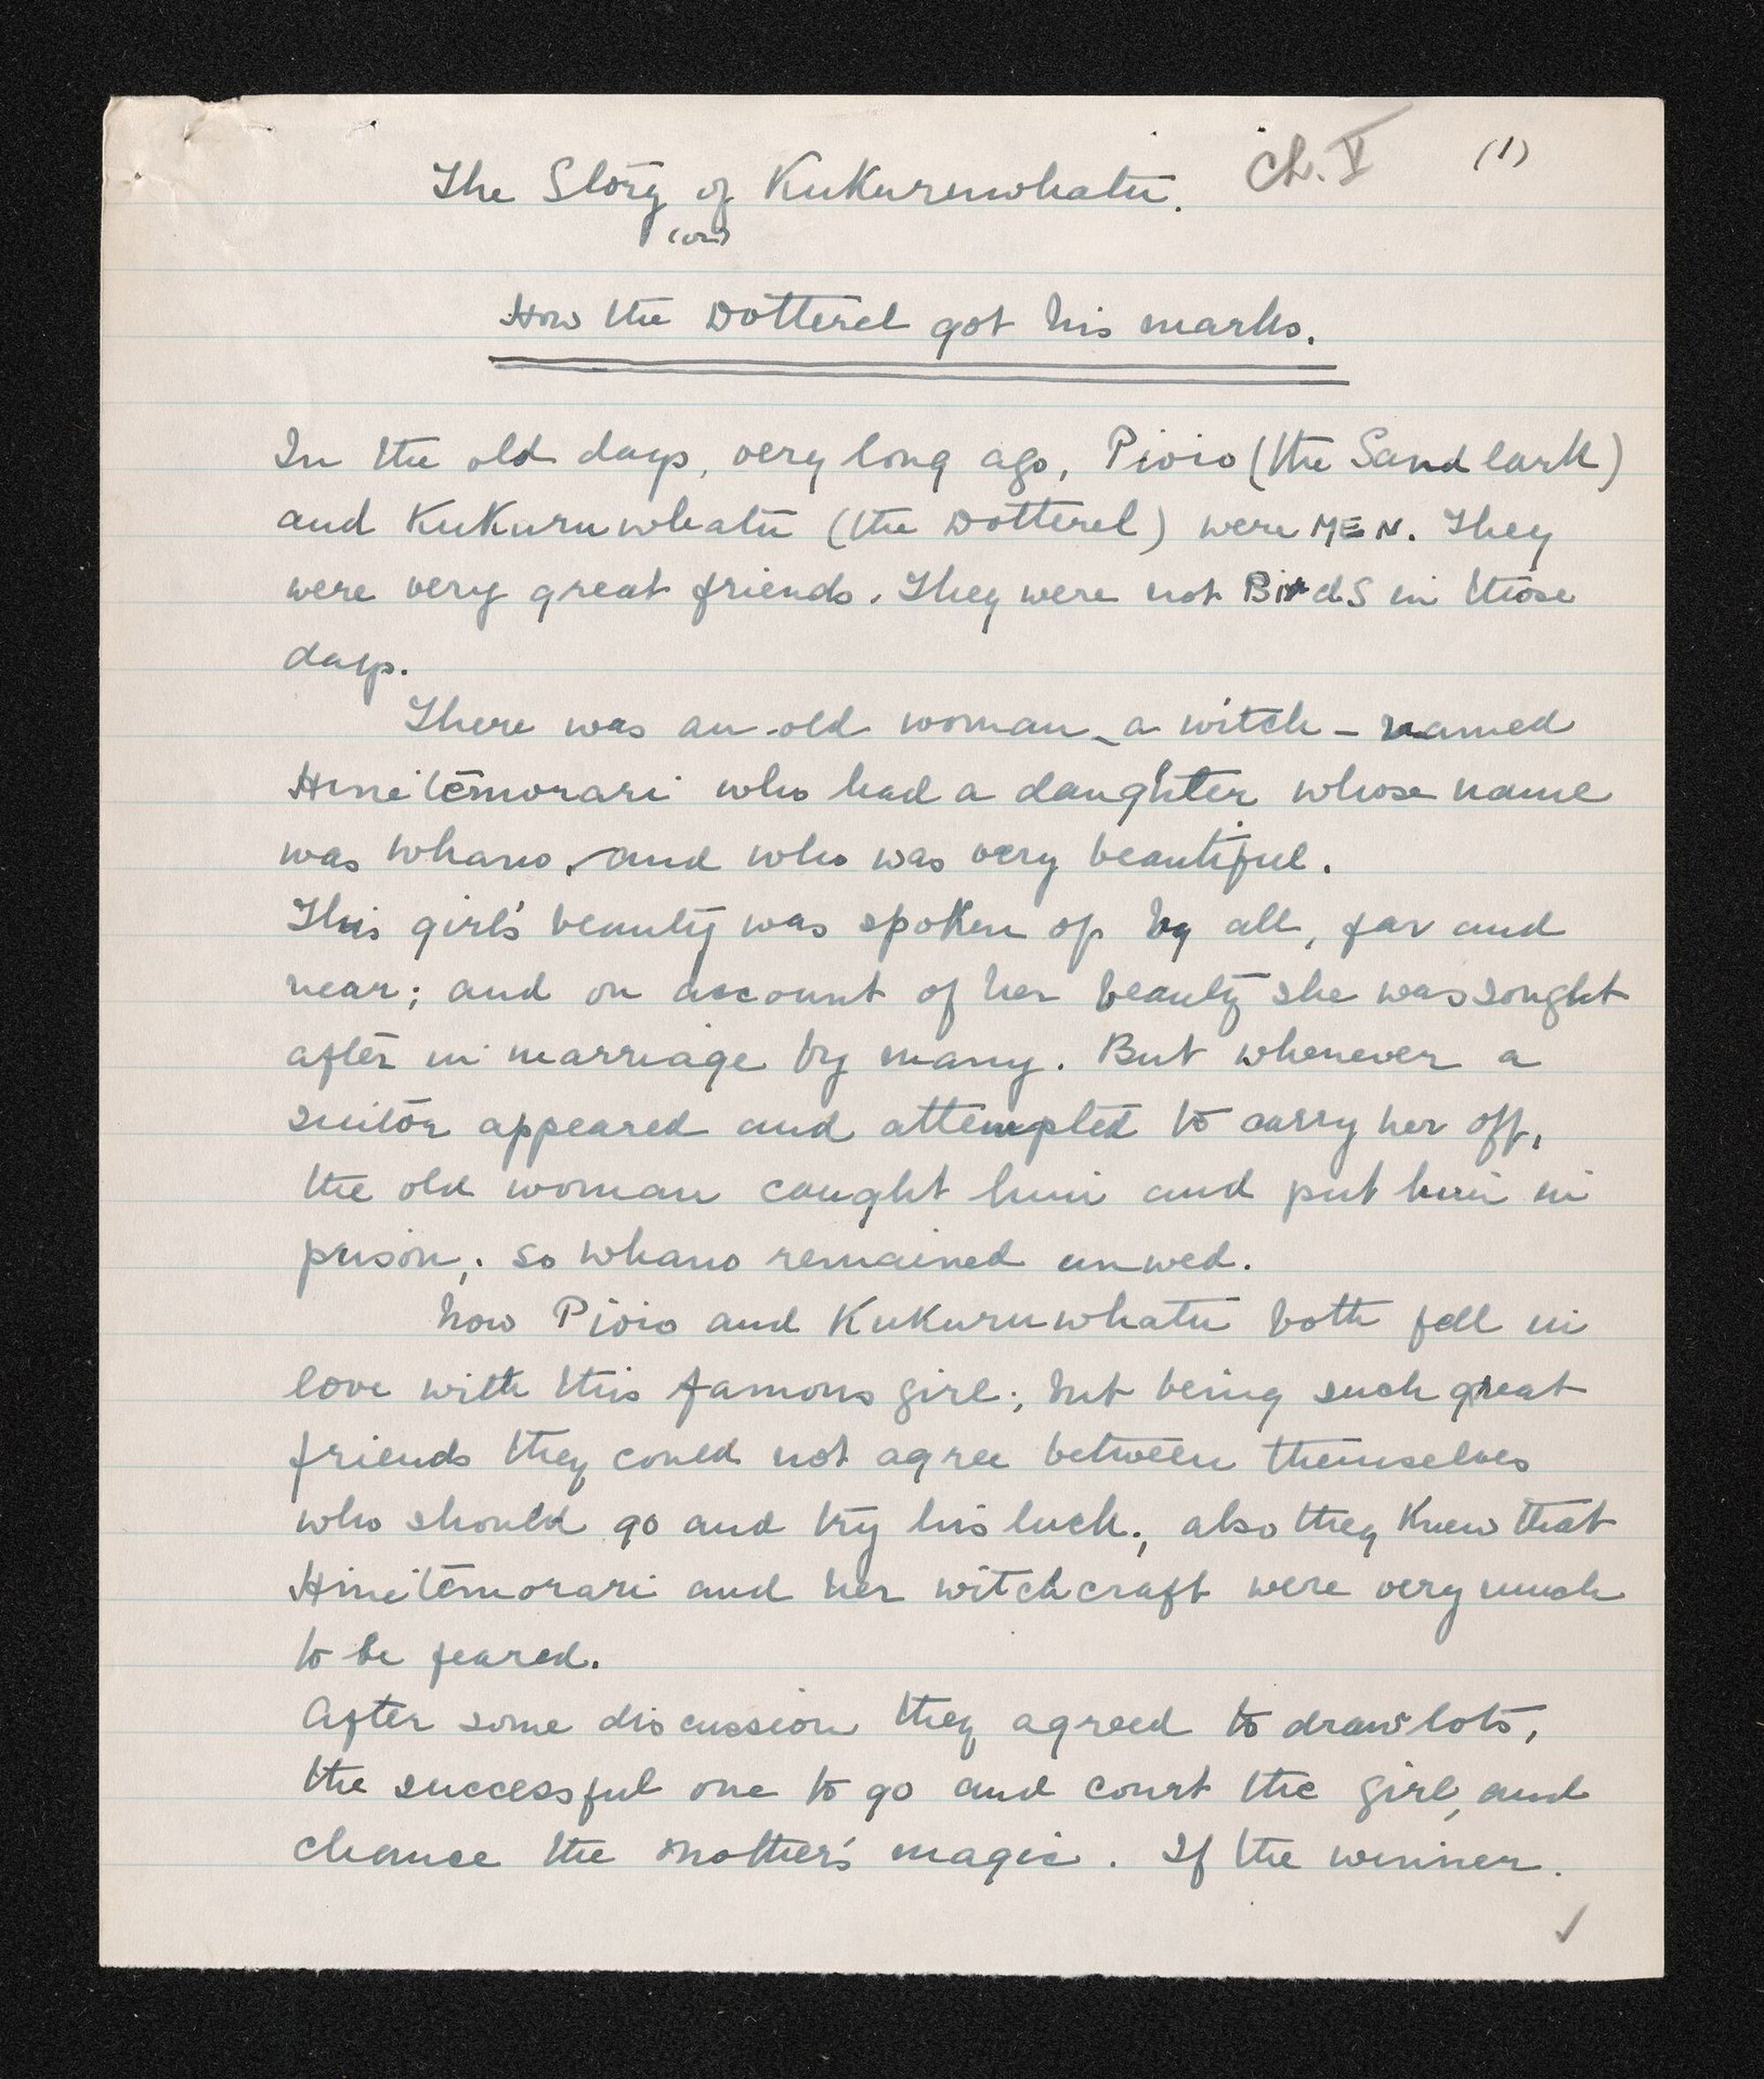 The Story of Kukuruwhatu. Ch. V (1)
(or)
How the Dotterel got his marks.
In the old days, very long ago, Pioio (the Sandlark)
and Kukuruwhatu (the Dotterel) were MEN. They
were very great friends. They were not BirdS in those
days.
There was an old woman - a witch - named
Hinitemorari who had a daughter whose name
was Whano, and who was very beautiful.
This girl's beauty was spoken of by all, far and
near; and on account of her beauty she was sought
after in marriage by many. But whenever a
suitor appeared and attempted to carry her off,
the old woman caught him and put him in
prison; so Whano remained unwed.
Now Pioio and Kukuruwhatu both fell in
love with this famous girl; but being such great
friends they could not agree between themselves
who should go and try his luck; also they knew that
Hinitemorari and her witchcraft were very much
to be feared.
After some discussion they agreed to draw lots,
the successful one to go and court the girl, and
chance the mother's magic. If the winner.
✓